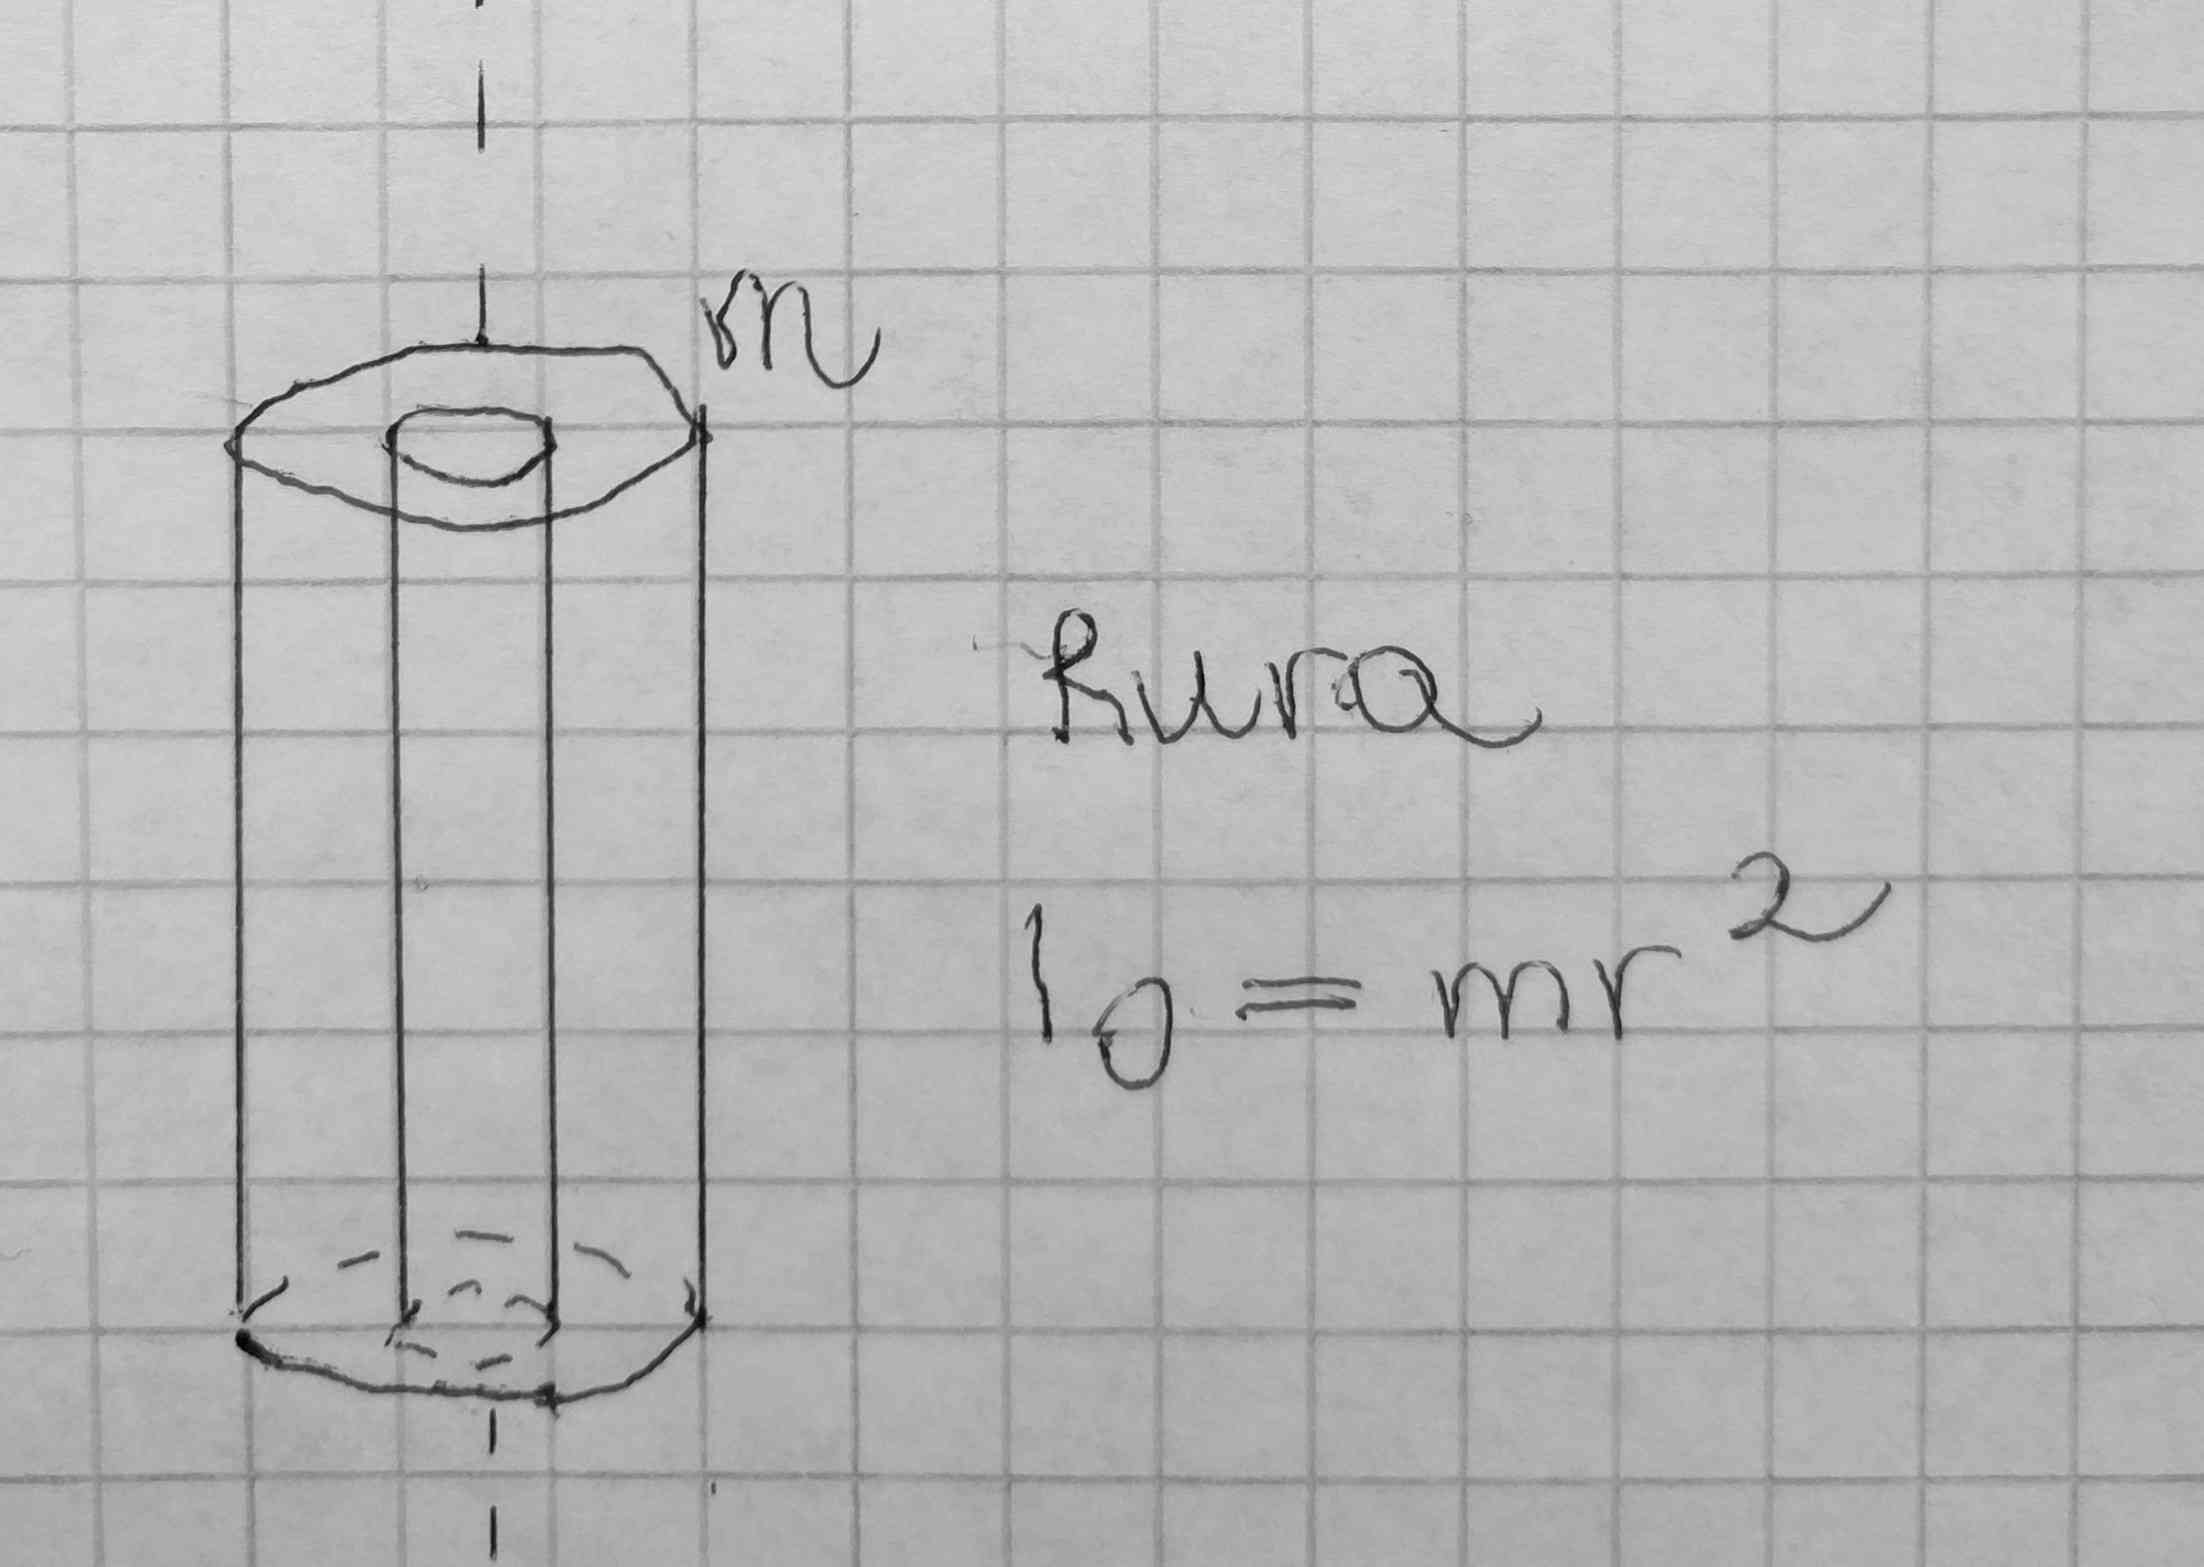 m
Rura
I₀ = mr²